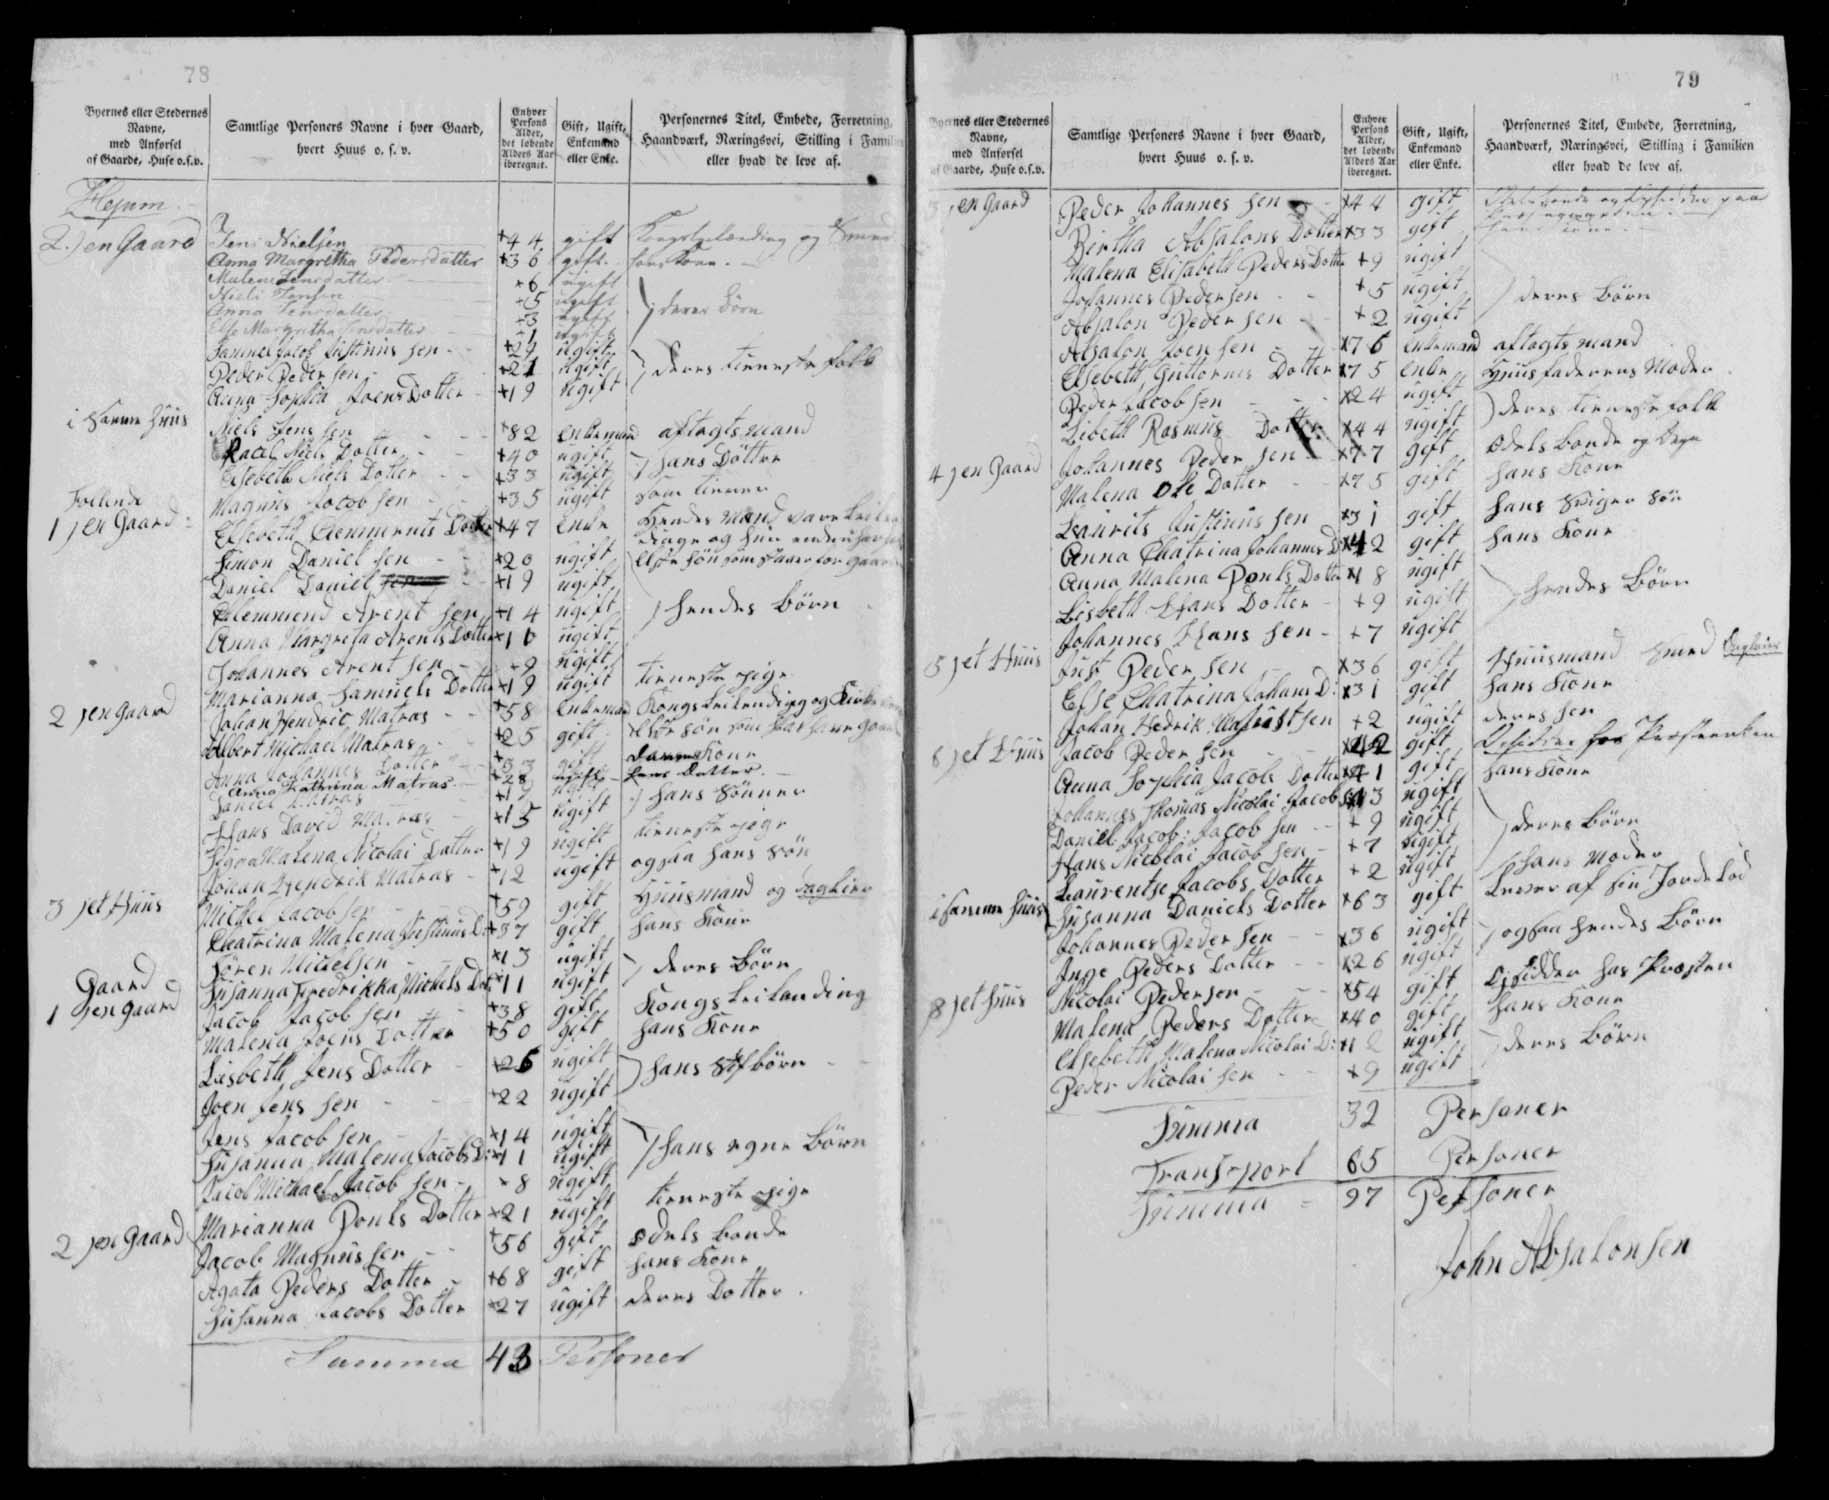 78
Byernes eller Stedernes Navne, med Anførsel af Gaarde, Huse o.s.v.
Samtlige Personers Navne i hver Gaard, hvert Huus o. s. v.
Enhver Persons Alder, det løbende Alders Aar iberegnet.
Gift, Ugift, Enkemand eller Enke.
Personernes Titel, Embede, Forretning, Haandværk, Næringsvei, Stilling i Familien eller hvad de leve af.
2. en Gaard Jens Nielsen 44 gift
Anna Margretha Pedersdatter 36 gift hans Kone
Malene Jensdatter 6 ugift
Niels Jensen 5 ugift deres Børn
Anna Jensdatter 3 ugift
Else Margretha Jensdatter 1 ugift
Samuel Jacob Justinus sen 29 ugift
Peder Peder sen 21 ugift deres tieneste folk
Anna Sophia Joens Dotter 19 ugift
i samme Huus Niels Jens sen 82 Enkemand aftagtsmand
Rachel Niels Dotter 40 ugift hans Døtter
Elsebeth Niels Dotter 33 ugift
Magnus Jacob sen 35 ugift som tiener
1 en Gaard Elsebeth Clemments Dotter 47 Enke
Simon Daniel sen 20 ugift
Daniel Daniel sen 19 ugift
Clemmend Arent sen 14 ugift hendes Børn
Anna Margreta Arents Dotter 10 ugift
Johannes Arent sen 9 ugift
Marianna Samuels Dotter 19 ugift tieneste pige
2 en gaard Johan Hendric Matras 58 Enkemand
Albert Michael Matras 25 gift
Anna Johannes Dotter 33 gift Dennes Kone
Anna Kathrina Matras 28 ugift hans Datter
Daniel Matras 19 ugift hans Sønner
Hans David Matras 15 ugift
Sigga Malena Nicolai Datter 19 ugift tieneste pige
Johan Hendrik Matras 12 ugift ogsaa hans Søn
3 et Huus Michel Jacobsen 59 gift Huusmand og Dagleier
Chatrina Malena Justinus D: 37 gift hans Kone
Søren Michelsen 13 ugift deres Børn
Susanna Fredrikka Michels Dot 11 ugift
Gaard
1 en gaard Jacob Jacob sen 38 gift Kongs Leilending
Malena Joens Dotter 50 gift hans Kone
Lisbeth Jens Dotter 26 ugift hans Stifbørn
Joen Jens sen 22 ugift
Jens Jacob sen 14 ugift
Susanna Malena Jacobs D: 11 ugift hans egne Børn
Jacob Michael Jacob sen 8 ugift
Marianna Pouls Dotter 21 ugift tieneste pige
2 en gaard Jacob Magnus sen 56 gift odels bonde
Agata Peders Dotter 68 gift hans Kone
Susanna Jacobs Dotter 27 ugift deres Dotter
Summa 43 Personer
79
Byernes eller Stedernes Navne, med Anførsel af Gaarde, Huse o.s.v.
Samtlige Personers Navne i hver Gaard, hvert Huus o. s. v.
Enhver Persons Alder, det løbende Alders Aar iberegnet.
Gift, Ugift, Enkemand eller Enke.
Personernes Titel, Embede, Forretning, Haandværk, Næringsvei, Stilling i Familien eller hvad de leve af.
3 en Gaard Peder Johannes sen 44 gift
Birtha Absalons Dotter 33 gift hans Kone
Malena Elisabeth Peders Dotter 9 ugift
Johannes Pedersen 5 ugift deres Børn
Absalon Peder sen 2 ugift
Absalon Joen sen 76 Enkemand aftagtsmand
Elsebeth Guttorms Dotter 75 Enke Huusfaderens Moder
Peder Jacob sen 24 ugift deres tieneste folk
Lisbeth Rasmus Dotter 44 ugift
4 en Gaard Johannes Peder sen 77 gift odels bonde og
Malena Ole Dotter 75 gift hans Kone
Laurits Justinus sen 31 gift hans Sviger Søn
Anna Chatrina Johannes D 42 gift hans Kone
Anna Malena Pouls Dotter 18 ugift
Lisbeth Hans Dotter 9 ugift hendes Børn
Johannes Hans sen 7 ugift
5 et Huus Just Peder sen 36 gift Huusmand Smed Dagleier
Else Chatrina Johans D: 31 gift hans Kone
Johan Hedrik Justsen 2 ugift deres sen
6 et Huus Jacob Peder sen 42 gift
Anna Sophia Jacobs Dotter 41 gift hans Kone
Johannes Thomas Nicolai Jacobs 13 ugift
Daniel Jacob: Jacob sen 9 ugift deres Børn
Hans Nicolai Jacob sen 7 ugift
Laurentse Jacobs Dotter 2 ugift
i samme Huus Susanna Daniels Dotter 63 gift hans Moder Lever af sin Jordelod
Johannes Peder sen 36 ugift ogsaa hendes Børn
Inge Peders Dotter 26 ugift
8 et Huus Nicolai Pedersen 54 gift Opsidder hos Præsten
Malena Peders Dotter 40 gift hans Kone
Elsebeth Malena Nicolai D: 12 ugift deres Børn
Peder Nicolai sen 9 ugift
Summa 32 Personer
Transport 65 Personer
Summa = 97 Personer
John Absalonsen